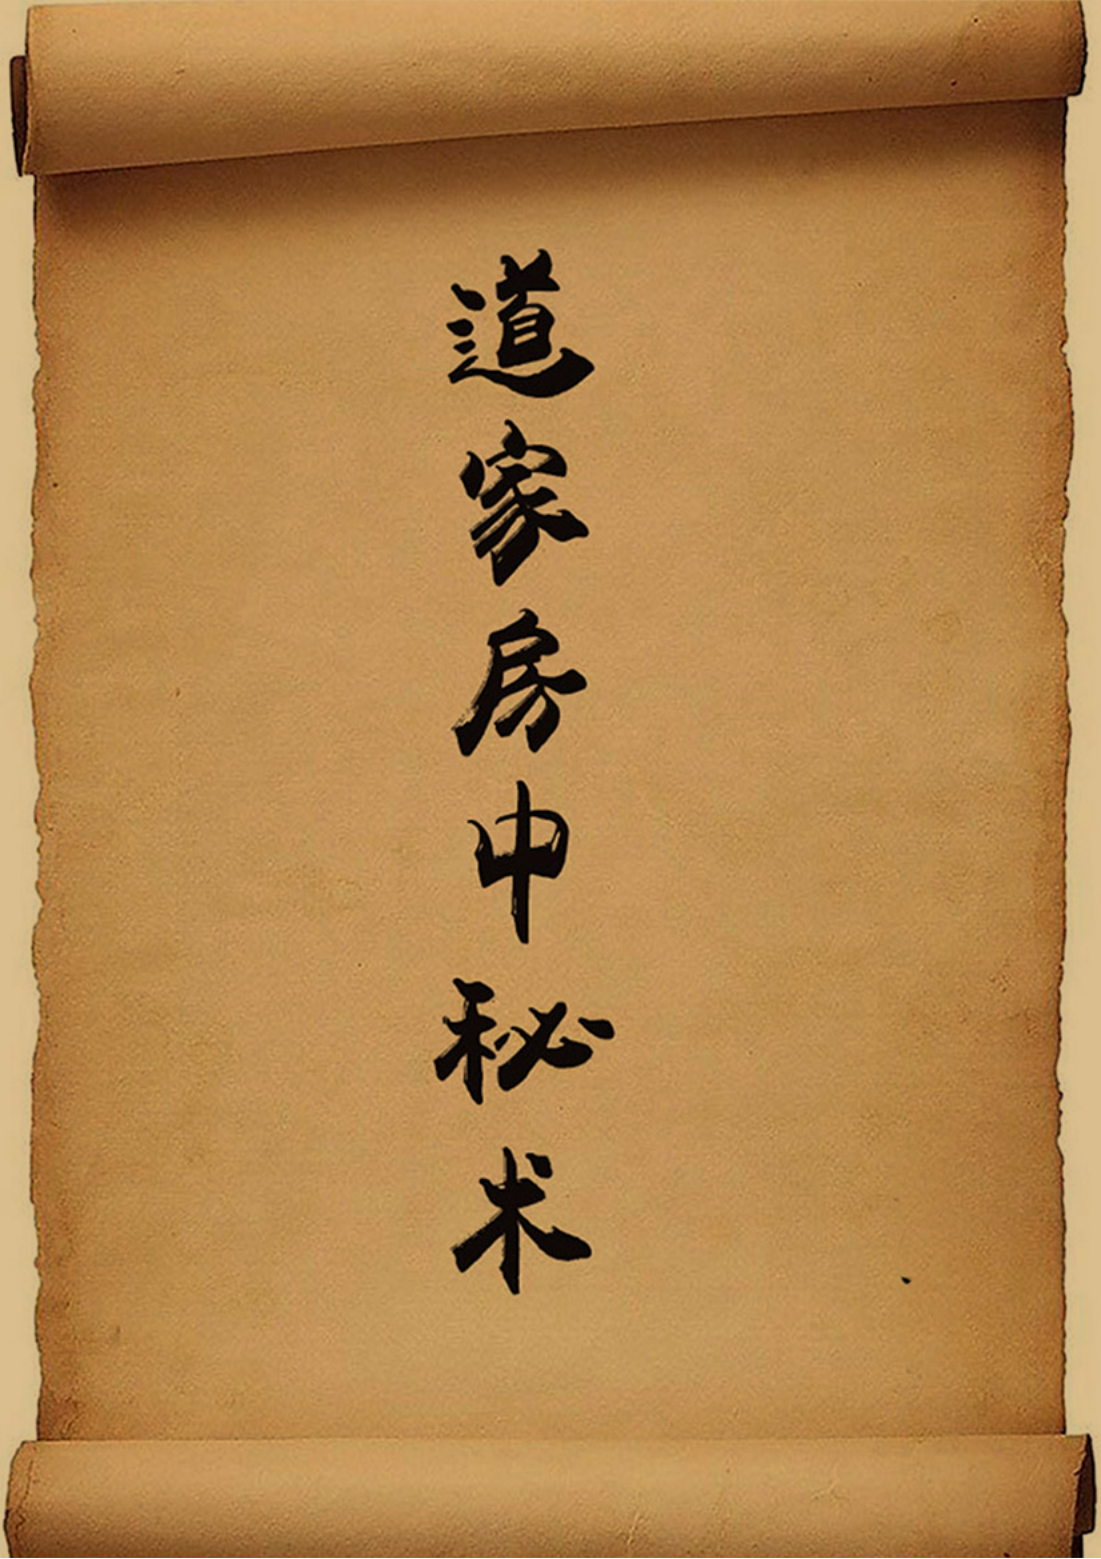 道家房中秘术